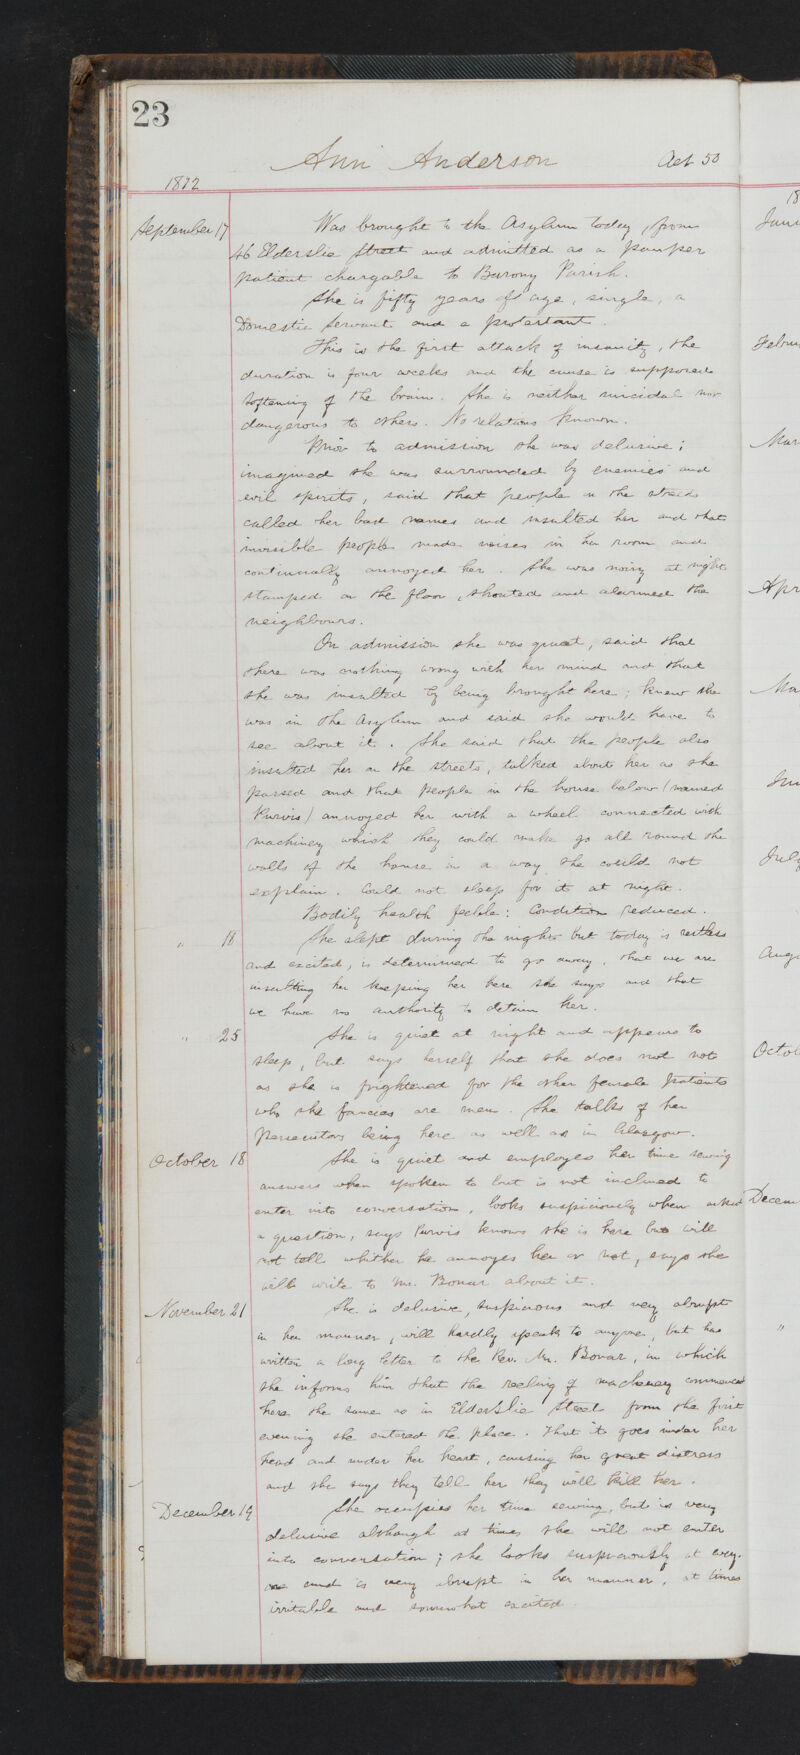 23
Ann Anderson Aet 50
1872
September 17 Was brought to the Asylum today, from
46 Elderslie Street and admitted as a pauper
patient chargable to Barony Parish.
She is fifty years of age, single, a
Domestic Servant and a protestant.
This is the first attack of insanity, the
duration is four weeks and the cause is supposed
Softening of the brain. She is neither suicidal nor
dangerous to others. No relations known.
Prior to admission she was delusive;
imagined she was surrounded by enemies and
evil spirits, said that people in the streets
called her bad names and insulted her and that
invisible people made noises in her room and
continually annoyed her. She was noisy at night
stamped on the floor, shouted and alarmed the
neighbours.
On admission she was quiet, said that
there was nothing wrong with her mind and that
she was insulted by being brought here; knew she
was in the Asylum and said she would have to
see about it. She said that the people also
insulted her on the streets, talked about her as she
passed and that people in the house below (named
Purvis) annoyed her with a wheel connected with
machinery which they could make go all round the
walls of the house in a way she could not
explain. Could not sleep for it at night.
Bodily health feeble: Condition reduced.
" 18 She slept during the night but today is restless
and excited, is determined to go away, that we are
insulting her keeping her here she says and that
we have no authority to detain her.
" 25 She is quiet at night and appears to
sleep, but says herself that she does not not
as she is frightened for the other female patients
who she fancies are men. She talks of her
persecutors being here as well as in Glasgow.
October 18 She is quiet and employes her time sewing
answers when spoken to but is not inclined to
enter into conversation, looks suspiciously when asked
a question, says Purvis knows she is here but will
not tell whither he annoyes her or not, says she
will write to Mr. Bonar about it.
November 21 She is delusive, suspicious and very abrupt
in her manner, will hardly speak to anyone, but has
written a long letter to the Rev. Mr. Bonar, in which
she informs him that the reeling of machinery commenced
here the same as in Elderslie Street from the first
evening she entered the place. That it goes under her
head and under her heart, causing her great distress
and she says they tell her they will kill her.
December 19 She occupies her time sewing, but is very
delusive although at times she will not enter
into conversation; she looks suspiciously at every-
one and is very abrupt in her manner, at times
irritable and somewhat excited.
18
Janu
Febru
Mar
Apr
Ma
Jun
July
Augu
Octob
Decem
"